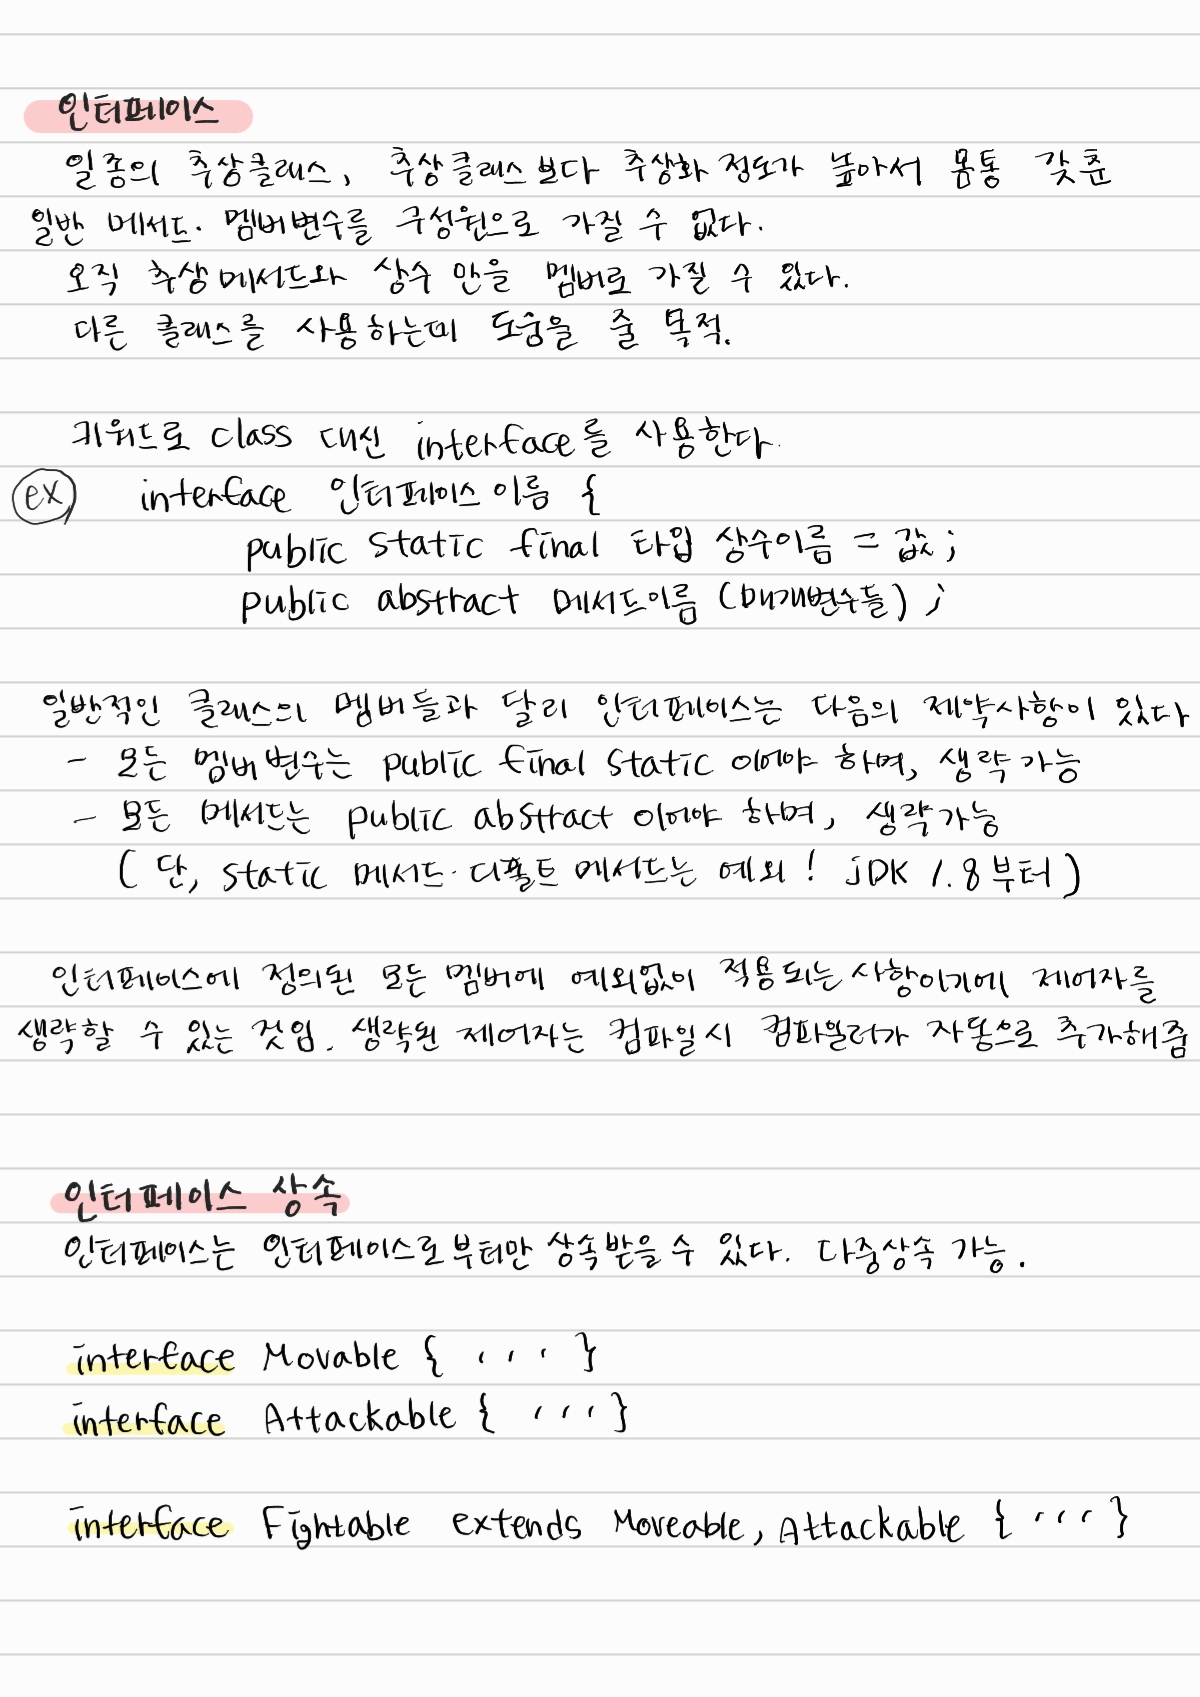 인터페이스
일종의 추상클래스, 추상클래스보다 추상화 정도가 높아서 몸통 갖춘
일반 메서드. 멤버변수를 구성원으로 가질 수 없다.
오직 추상메서드와 상수 만을 멤버로 가질 수 있다.
다른 클래스를 사용하는데 도움을 줄 목적.
키워드로 class 대신 interface를 사용한다.
ex interface 인터페이스이름 {
public static final 타입 상수이름 = 값;
public abstract 메서드이름 (매개변수들);
일반적인 클래스의 멤버들과 달리 인터페이스는 다음의 제약사항이 있다
- 모든 멤버변수는 public final static 이어야 하며, 생략가능
- 모든 메서드는 public abstract 이어야 하며, 생략가능
( 단, static 메서드·디폴트 메서드는 예외! JDK 1.8부터)
인터페이스에 정의된 모든 멤버에 예외없이 적용되는 사항이기에 제어자를
생략할 수 있는 것임. 생략된 제어자는 컴파일시 컴파일러가 자동으로 추가해줌
인터페이스 상속
인터페이스는 인터페이스로부터만 상속받을 수 있다. 다중상속 가능.
interface Movable { ... }
interface Attackable { ... }
interface Fightable extends Moveable, Attackable { ... }